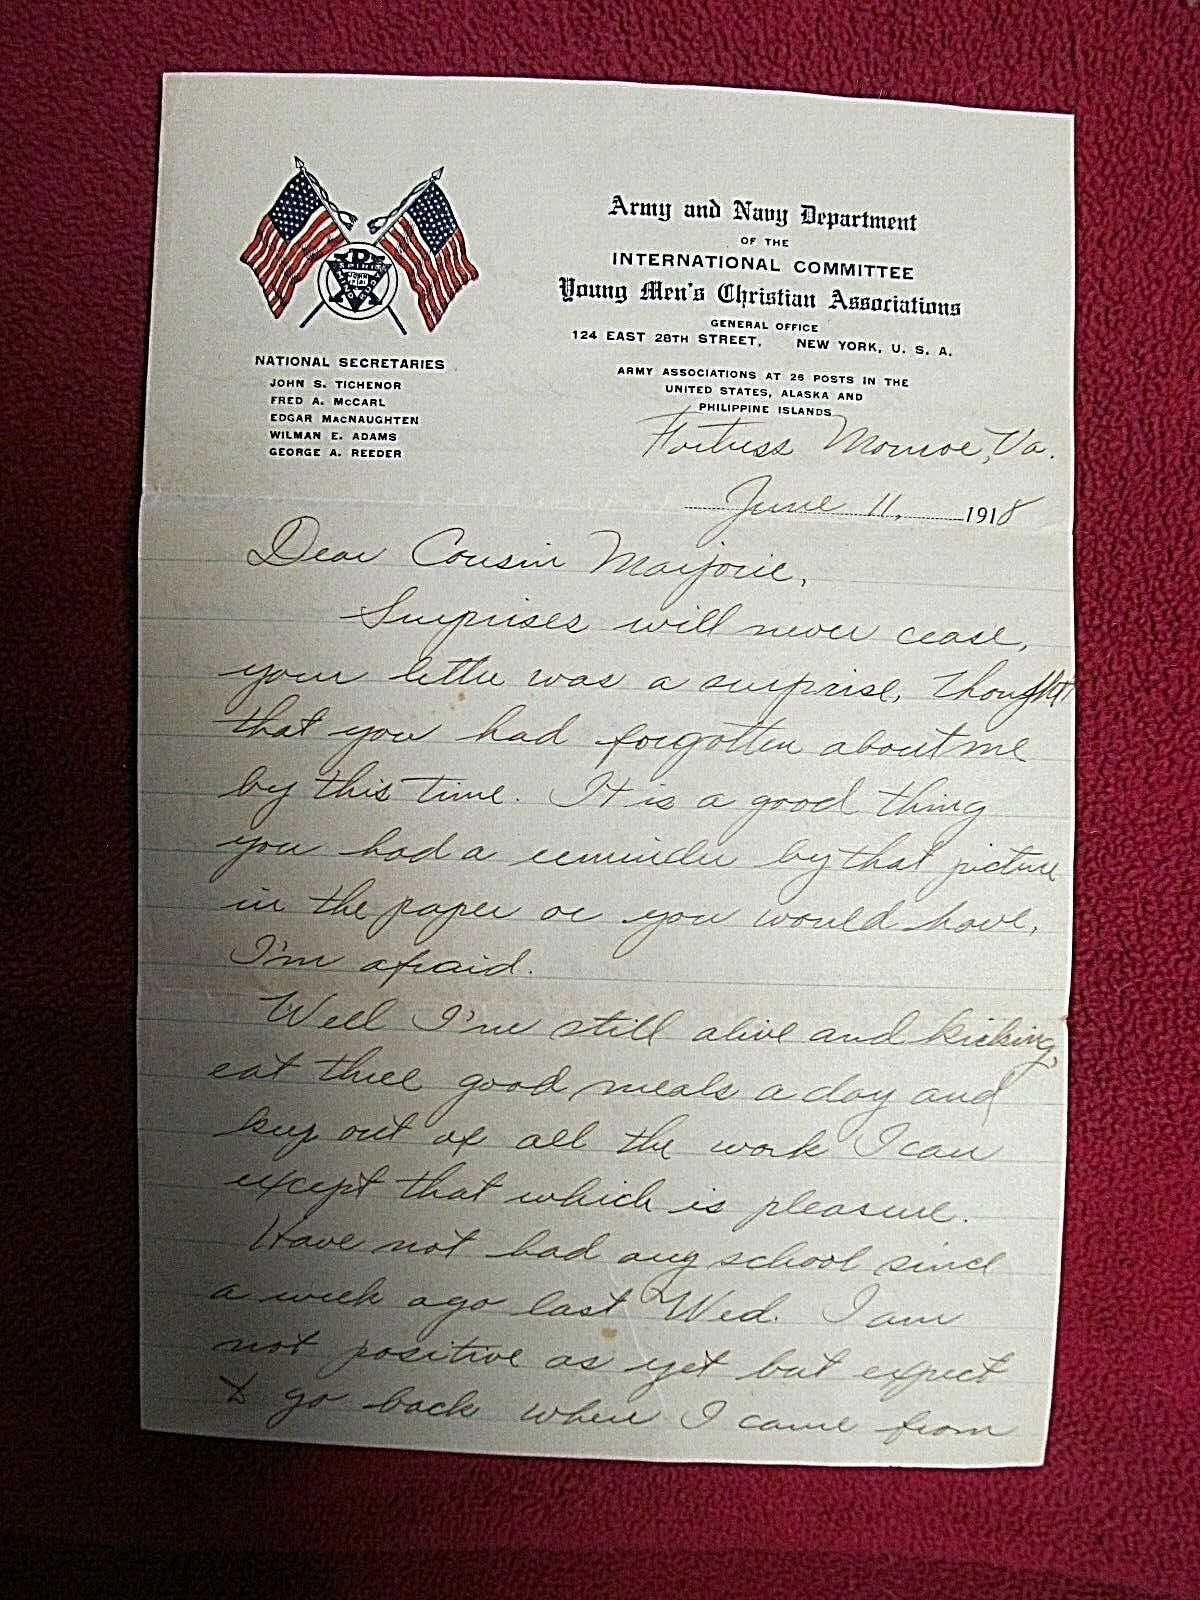 SPIRIT
MIND
BODY
JOHN
17-21
NATIONAL SECRETARIES
JOHN S. TICHENOR
FRED A. McCARL
EDGAR MacNAUGHTEN
WILMAN E. ADAMS
GEORGE A. REEDER
Army and Navy Department
OF THE
INTERNATIONAL COMMITTEE
Young Men's Christian Associations
GENERAL OFFICE
124 EAST 28TH STREET, NEW YORK, U. S. A.
ARMY ASSOCIATIONS AT 26 POSTS IN THE
UNITED STATES, ALASKA AND
PHILIPPINE ISLANDS
Fortress Monroe, Va.
June 11, 1918
Dear Cousin Marjorie,
Surprises will never cease,
your letter was a surprise, thought
that you had forgotten about me
by this time. It is a good thing
you had a reminder by that picture
in the paper or you would have,
I'm afraid.
Well I'm still alive and kicking,
eat three good meals a day and
keep out of all the work I can
except that which is pleasure.
Have not had any school since
a week ago last Wed. I am
not positive as yet but expect
to go back where I came from